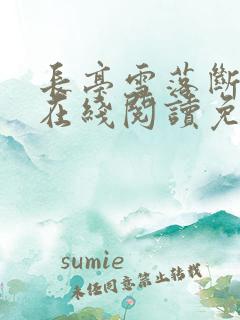 長亭雪落斷
在綫閱讀免
sumie
未经同意禁止转载